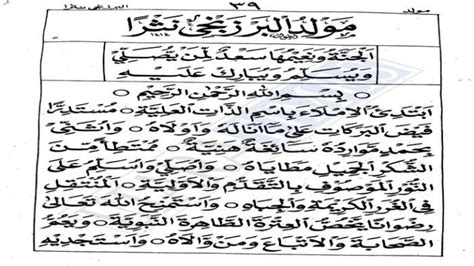 مولد ٣٩ البرزنجي نثرا
مَوْلِدُ الْبَرْزَنْجِيْ نَثْرًا
اَلْجَنَّةُ وَنَعِيْمُهَا سَعْدٌ لِمَنْ يُصَلِّيْ
وَيُسَلِّمُ وَيُبَارِكُ عَلَيْهِ
بِسْمِ اللهِ الرَّحْمٰنِ الرَّحِيْمِ
اَبْتَدِئُ الْاِمْلَاءَ بِاسْمِ الذَّاتِ الْعَلِيَّةِ مُسْتَدِرًّا
فَيْضَ الْبَرَكَاتِ عَلٰى مَا اَنَالَهُ وَاَوْلَاهُ وَاُثَنِّيْ
بِحَمْدٍ مَوَارِدُهُ سَائِغَةٌ هَنِيَّةٌ مُمْتَطِيًا مِنَ
الشُّكْرِ الْجَمِيْلِ مَطَايَاهُ وَاُصَلِّيْ وَاُسَلِّمُ عَلَى
النُّوْرِ الْمَوْصُوْفِ بِالتَّقَدُّمِ وَالْاَوَّلِيَّةِ الْمُنْتَقِلِ
فِي الْغُرَرِ الْكَرِيْمَةِ وَالْجِبَاهِ وَاَسْتَمْنِحُ اللهَ تَعَالٰى
رِضْوَانًا يَخُصُّ الْعِتْرَةَ الطَّاهِرَةَ النَّبَوِيَّةَ وَيَعُمُّ
الصَّحَابَةَ وَالْاَتْبَاعَ وَمَنْ وَالَاهُ وَاَسْتَجْدِيْهِ